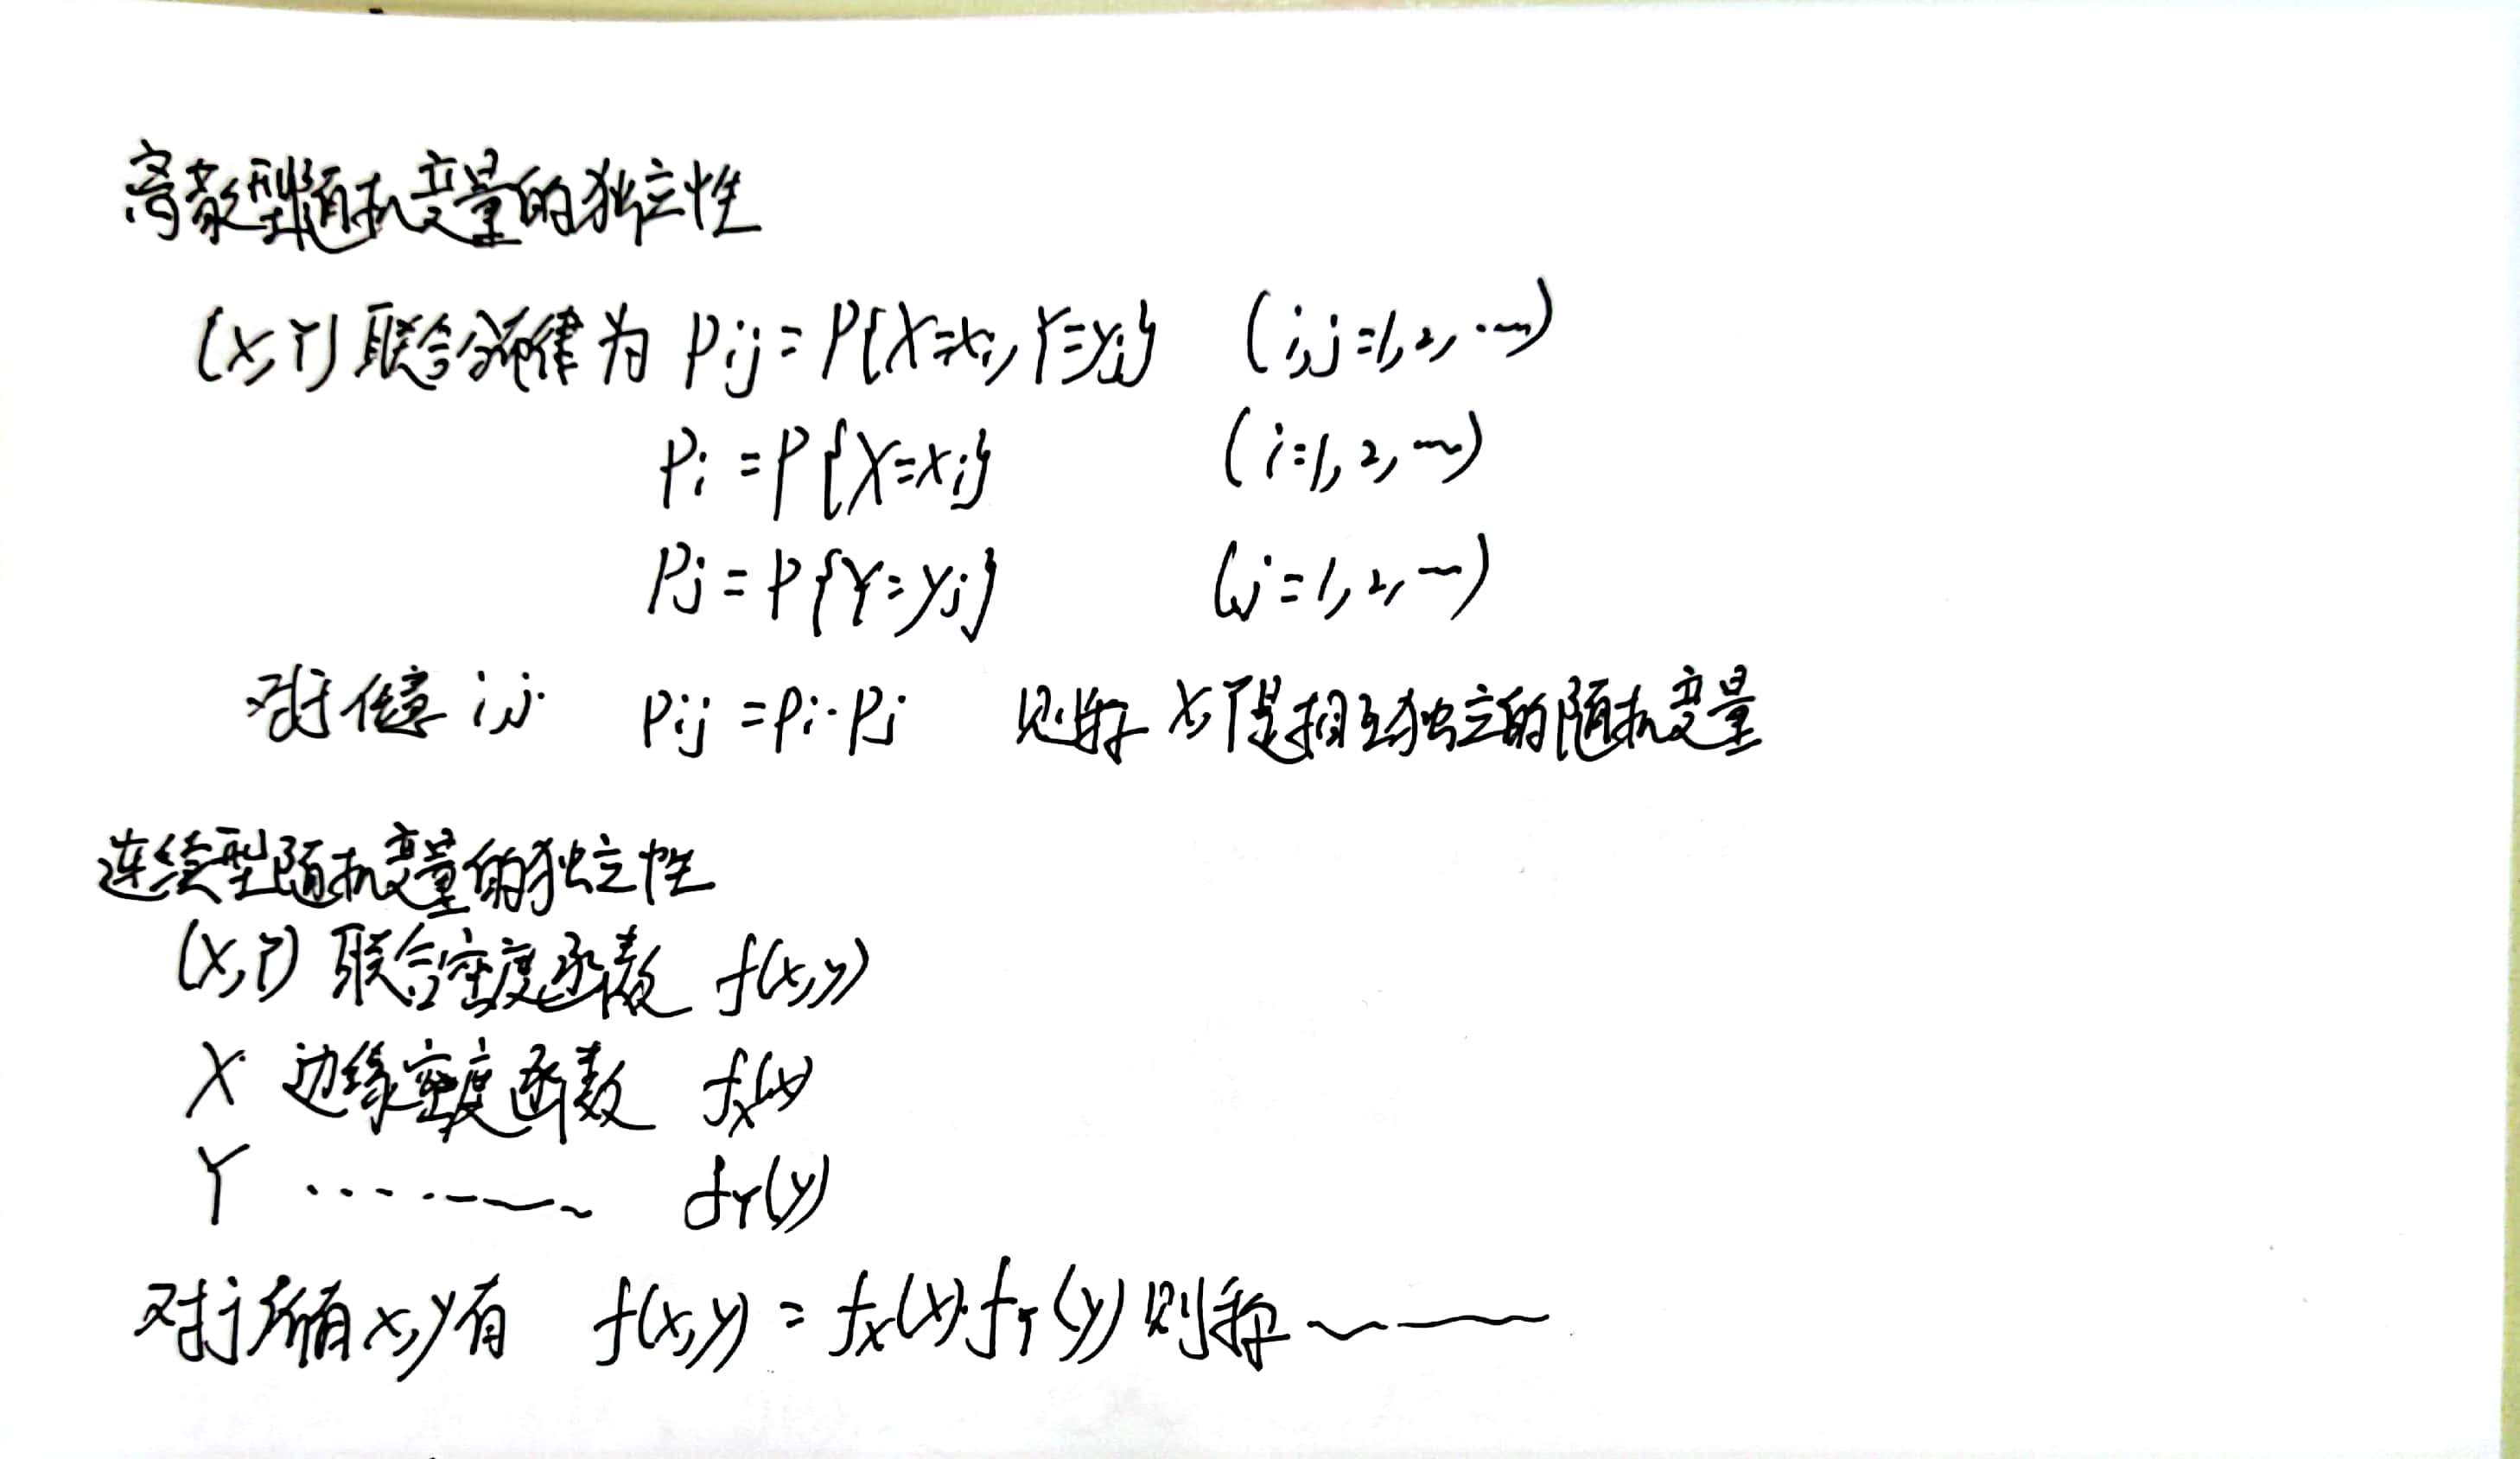 离散型随机变量的独立性
(X,Y)联合分布律为 Pij=P{X=xi,Y=yj} (i,j=1,2,…)
Pi=P{X=xi} (i=1,2,…)
Pj=P{Y=yj} (j=1,2,…)
对任意 i,j Pij=Pi·Pj 则称 X,Y是相互独立的随机变量
连续型随机变量的独立性
(X,Y) 联合密度函数 f(x,y)
X 边缘密度函数 fX(x)
Y ……… fY(y)
对于所有x,y有 f(x,y)=fX(x)·fY(y)则称 ———